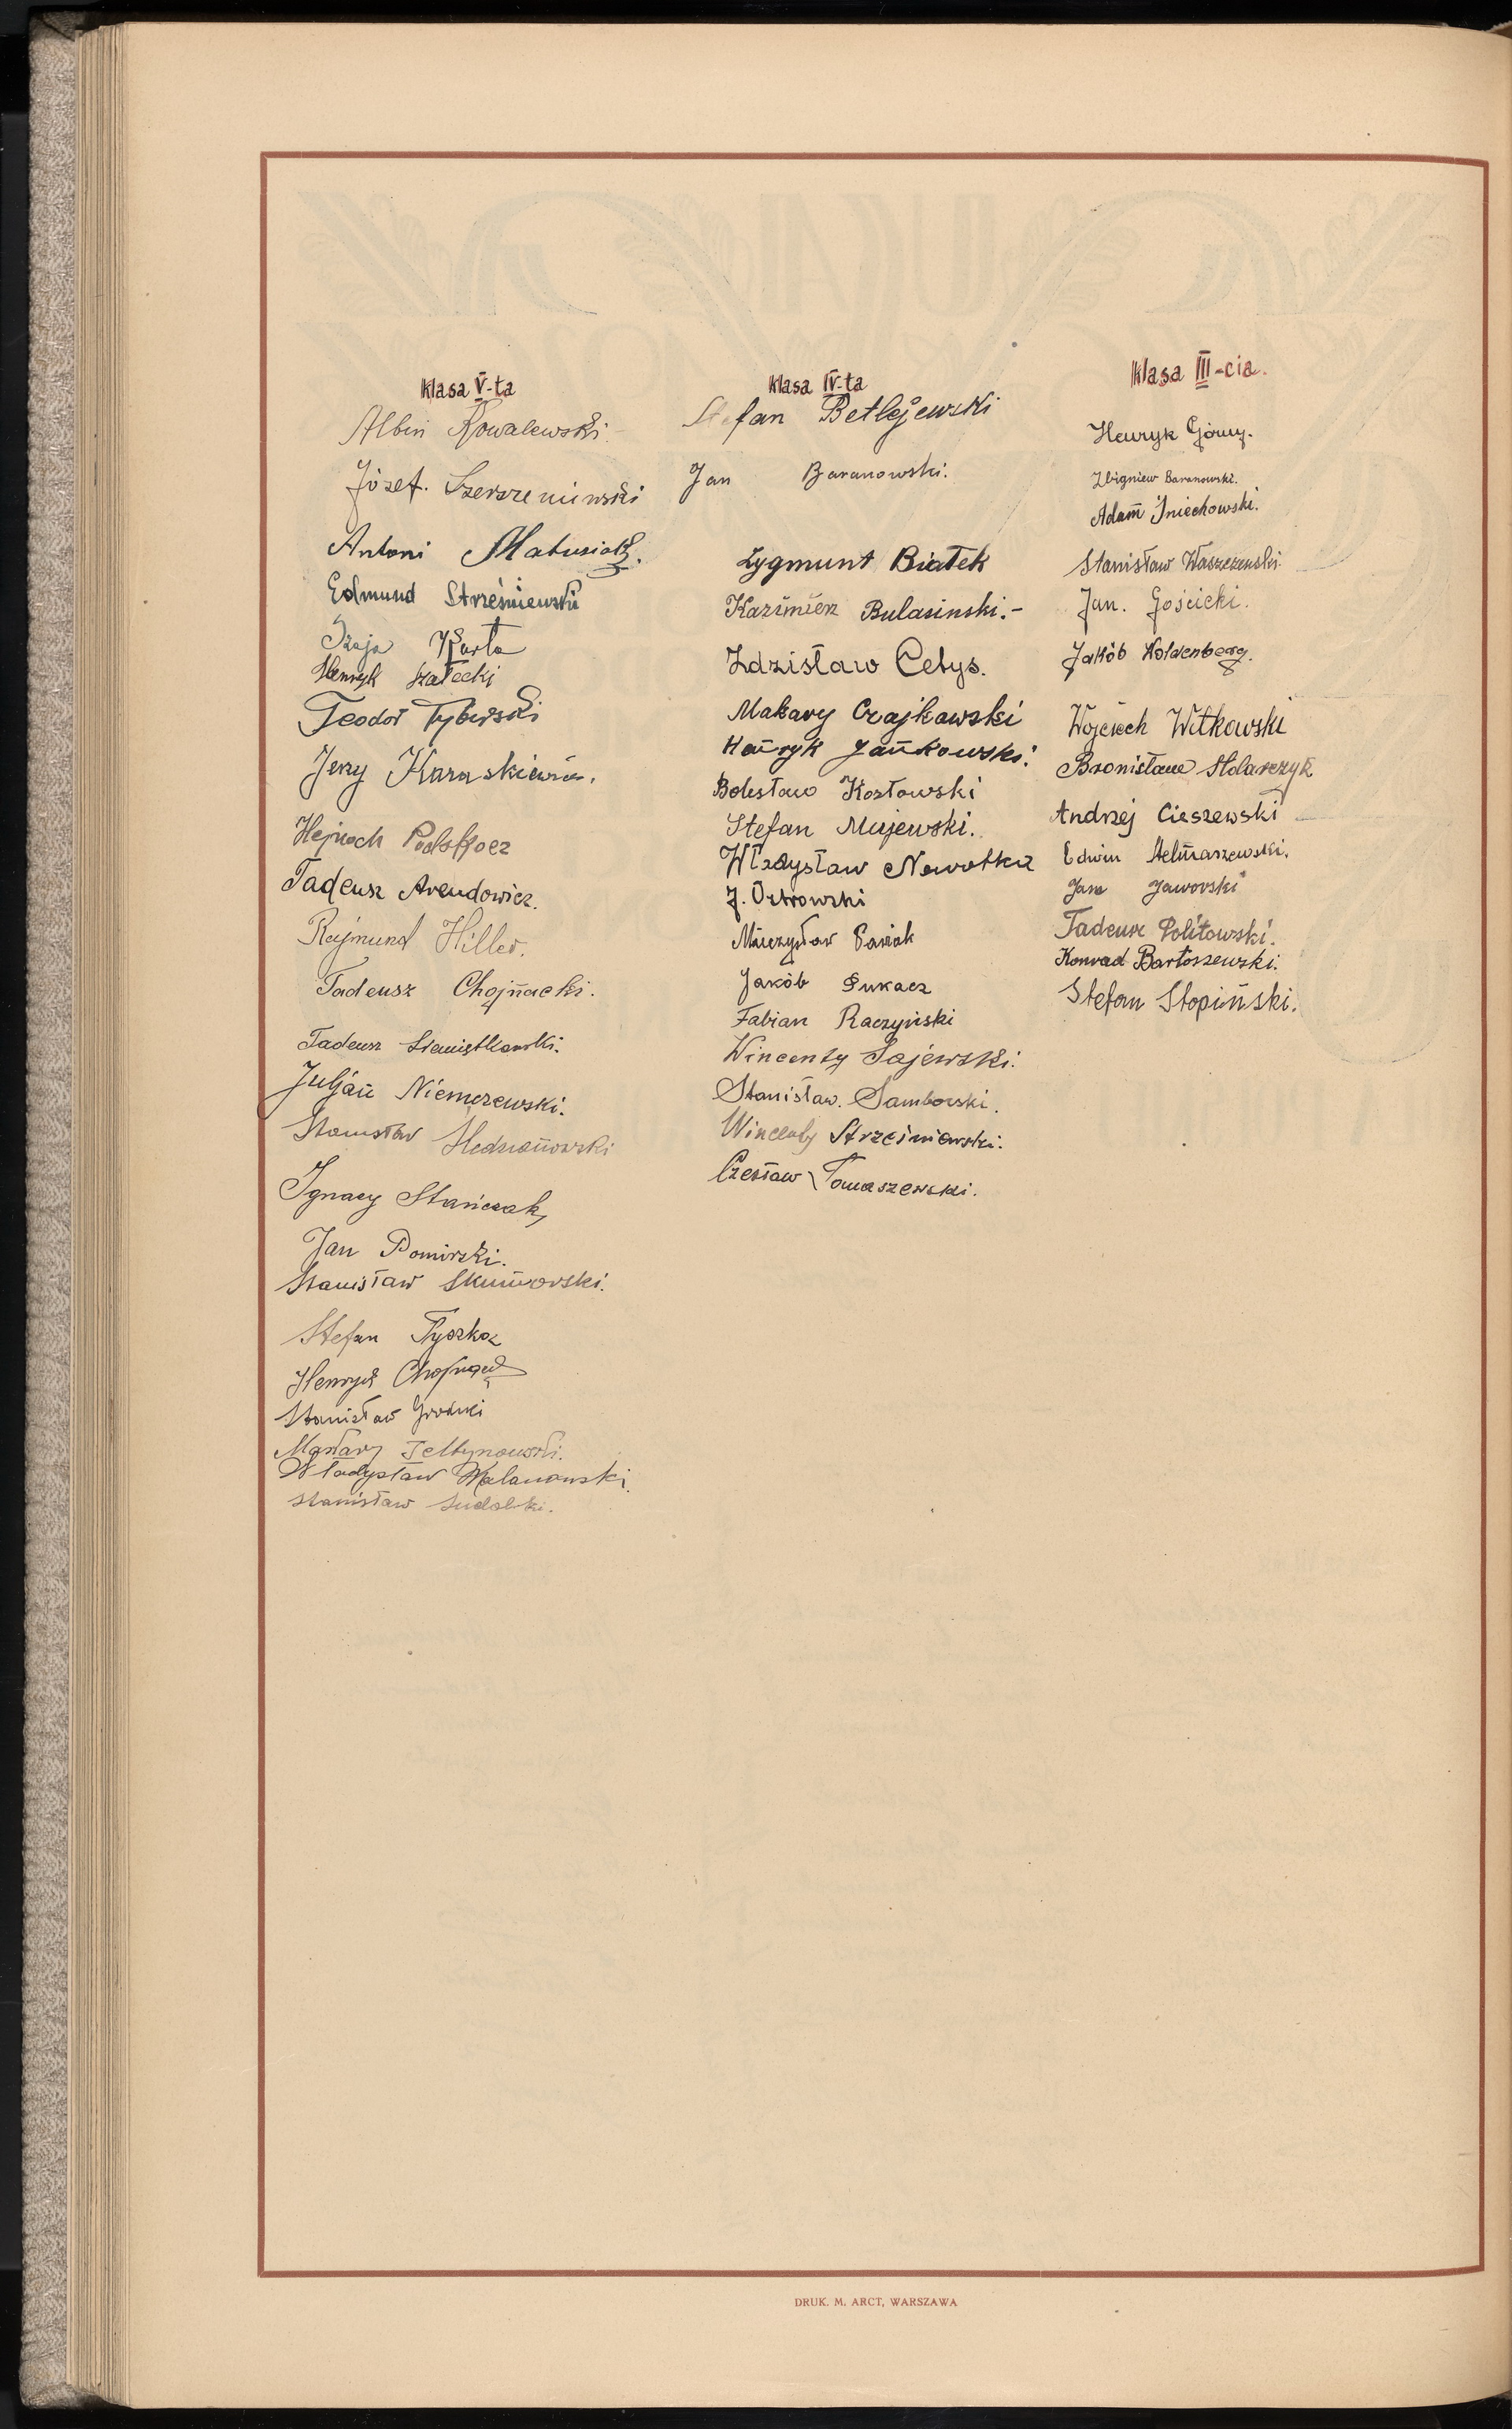 Klasa V-ta
Albin Kowalewski
Józef. Szerszeniewski
Antoni Matusiak.
Edmund Strześniewski
Szaja Warta
Henryk Szałecki
Teodor Tyburski
Jerzy Karaśkiewicz.
Hejnoch Podskocz
Tadeusz Arendowicz.
Rajmund Hiller.
Tadeusz Chojnacki.
Tadeusz Siemiątkowski.
Juljan Niemczewski.
Stanisław
Ignacy Stańczak
Jan Pomirski.
Stanisław Skumorski.
Stefan Tyszka
Henryk Chojnacki
Stanisław Grodzki
Makary Żełtynowski.
Władysław Malanowski.
Stanisław Sudolski.
Klasa IV-ta
Stefan Betlejewski
Jan Baranowski.
Zygmunt Białek
Kazimierz Bulasinski.-
Zdzisław Cetys.
Makary Czajkowski
Henryk Jankowski.
Bolesław Kozłowski
Stefan Majewski.
Władysław Nowotka
J. Ostrowski
Mieczysław Pawiak
Jakób Pukacz
Fabian Raczyński
Wincenty Sajewski.
Stanisław. Samborski.
Wincenty Strześniewski.
Czesław Tomaszewski.
Klasa III-cia.
Henryk Górny.
Zbigniew Baranowski.
Adam Śniechowski.
Stanisław Waszczewski.
Jan. Gościcki.
Jakób Holdenberg.
Wojciech Witkowski
Bronisław Stolarczyk
Andrzej Cieszewski
Edwin Helmaszewski.
Jan Jaworski
Tadeusz Politowski.
Konrad Bartoszewski.
Stefan Stopiński.
DRUK. M. ARCT, WARSZAWA